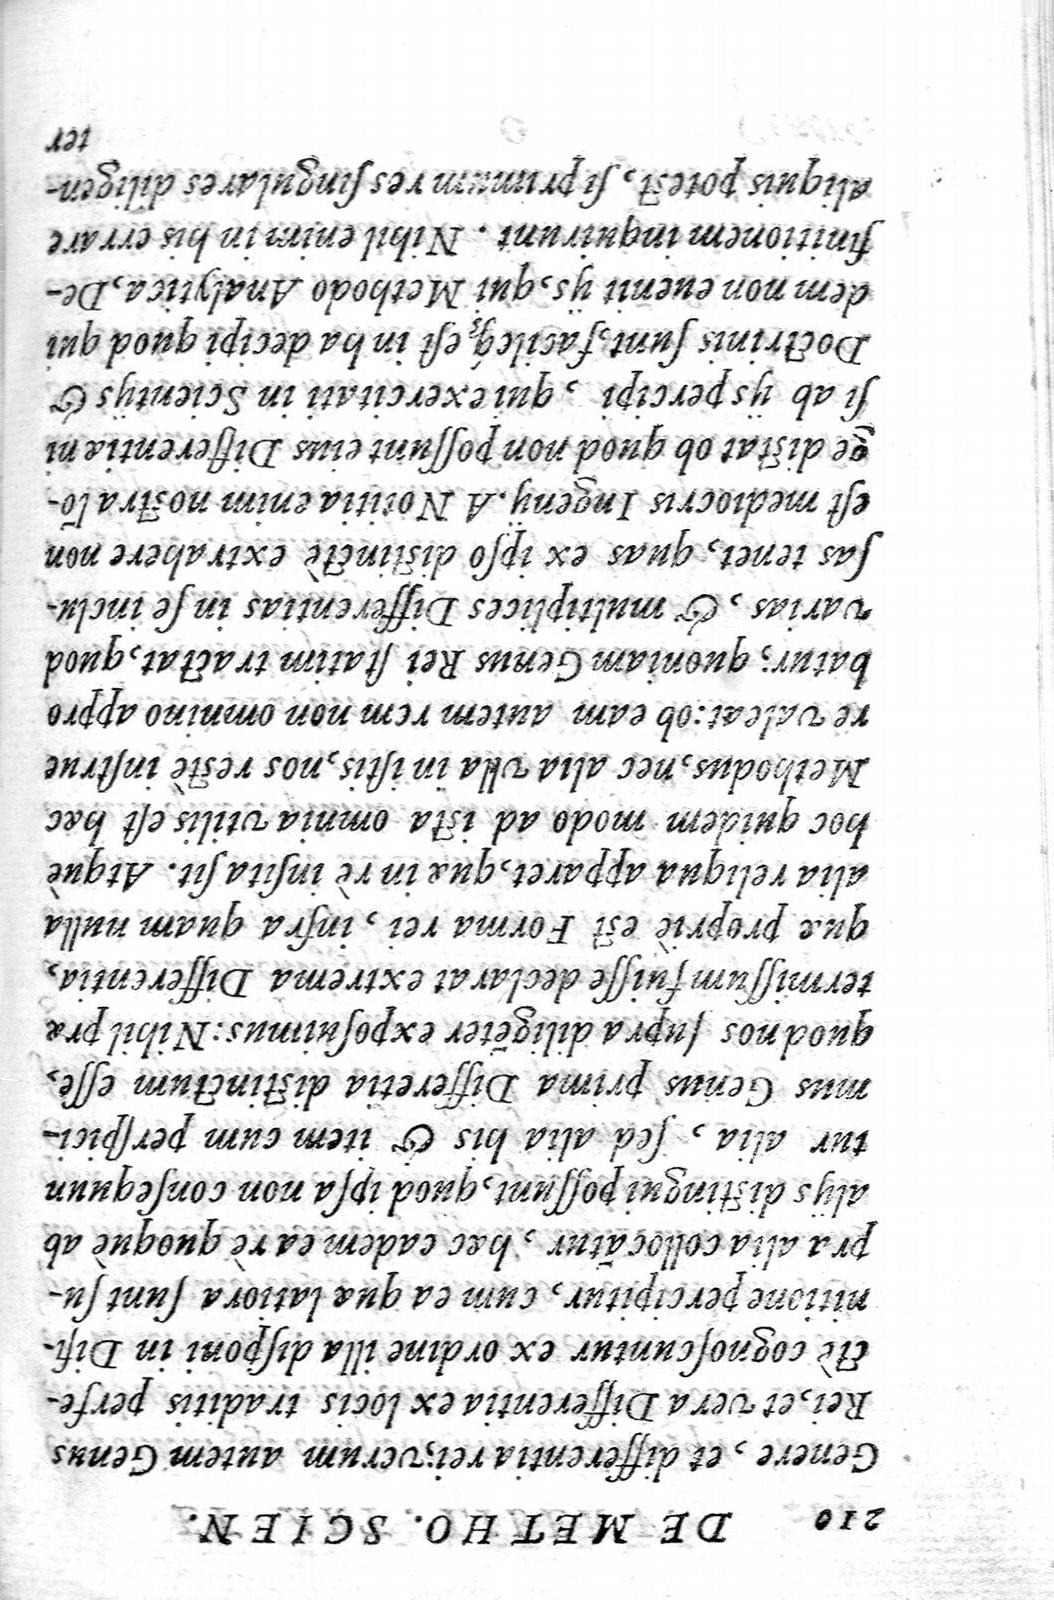 210 DE METHO. SCIEN.
Genere, et differentia rei; verum autem Genus
Rei, et vera Differentia ex locis traditis perfe-
ctè cognoscuntur ex ordine illa disponi in Difi-
nitione percipitur, cum ea quæ latiora sunt su-
pra alia collocãtur, hæc eadem ea rè quoquè ab
alÿs distingui possunt, quod ipsa non consequun
tur alia, sed alia his & item cum perspici-
mus Genus prima Differẽtia distinctum esse,
quod nos supra diligẽter exposuimus: Nihil præ
termissum fuisse declarat extrema Differentia,
quæ propriè est Forma rei, infra quam nulla
alia reliqua apparet, quæ in rè insita sit. Atquè
hoc quidem modo ad ista omnia vtilis est hæc
Methodus, nec alia vlla in istis, nos, rectè instrue
re valeat: ob eam autem rem non omnino appro
batur; quoniam Genus Rei statim tractat, quod
varias, & multiplices Differentias in se inclu-
sas tenet, quas ex ipso distinctè extrahere non
est mediocris Ingenÿ. A Notitia enim nostra lõ-
ge distat ob quod non possunt eius Differentiæ ni
si ab ÿs percipi, qui exercitati in Scientÿs &
Doctrinis sunt, facileq́; est in ha decipi quod qui
dem non euenit ÿs, qui Methodo Analytica, De-
finitionem inquirunt. Nihil enim in his errare
aliquis potest, si primum res singulares diligen-
ter